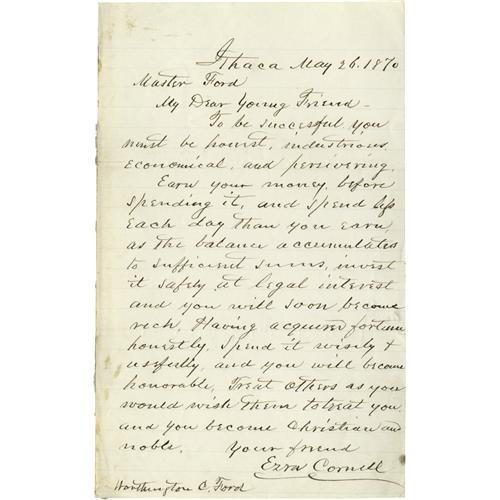 Ithaca May 26. 1870
Master Ford
My Dear Young Friend -
To be successful you
must be honist, industrious,
economical, and persivering.
Earn your money before
spending it, and spend less
each day than you earn,
as the balance accumulates
to sufficient sums, invest
it safely at legal interest
and you will soon become
rich. Having acquired fortune
honestly, spend it wisely &
usefully, and you will become
honorable, Treat others as you
would wish them to treat you,
and you become Christian and
noble. Your friend
Ezra Cornell
Worthington C. Ford